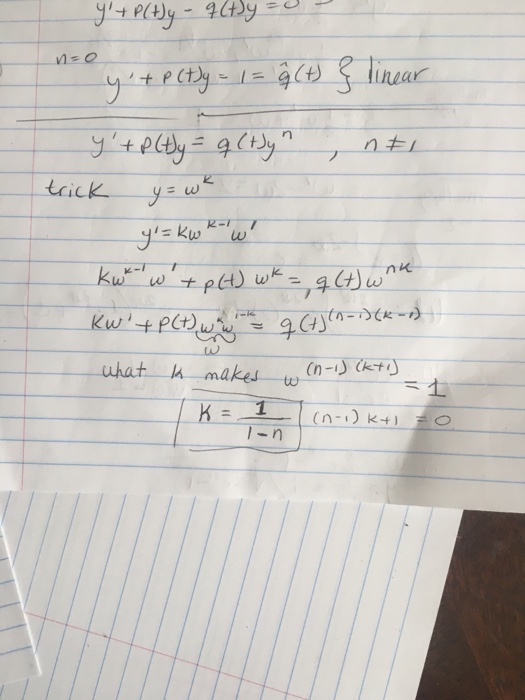 y' + P(t)y - q(t)y = 0
n=0
y' + P(t)y - 1 = q̂(t) } linear
y' + P(t)y = q(t)yⁿ , n ≠ 1
trick y = w^k
y' = kw^(k-1) w'
kw^(k-1) w' + p(t) w^k = q(t) w^(nk)
kw' + P(t) w^k w^(1-k) = q(t)^((n-1)(k-1))
w
what k makes w^((n-1)(k+1)) = 1
K = 1/(1-n) (n-1) k+1 = 0